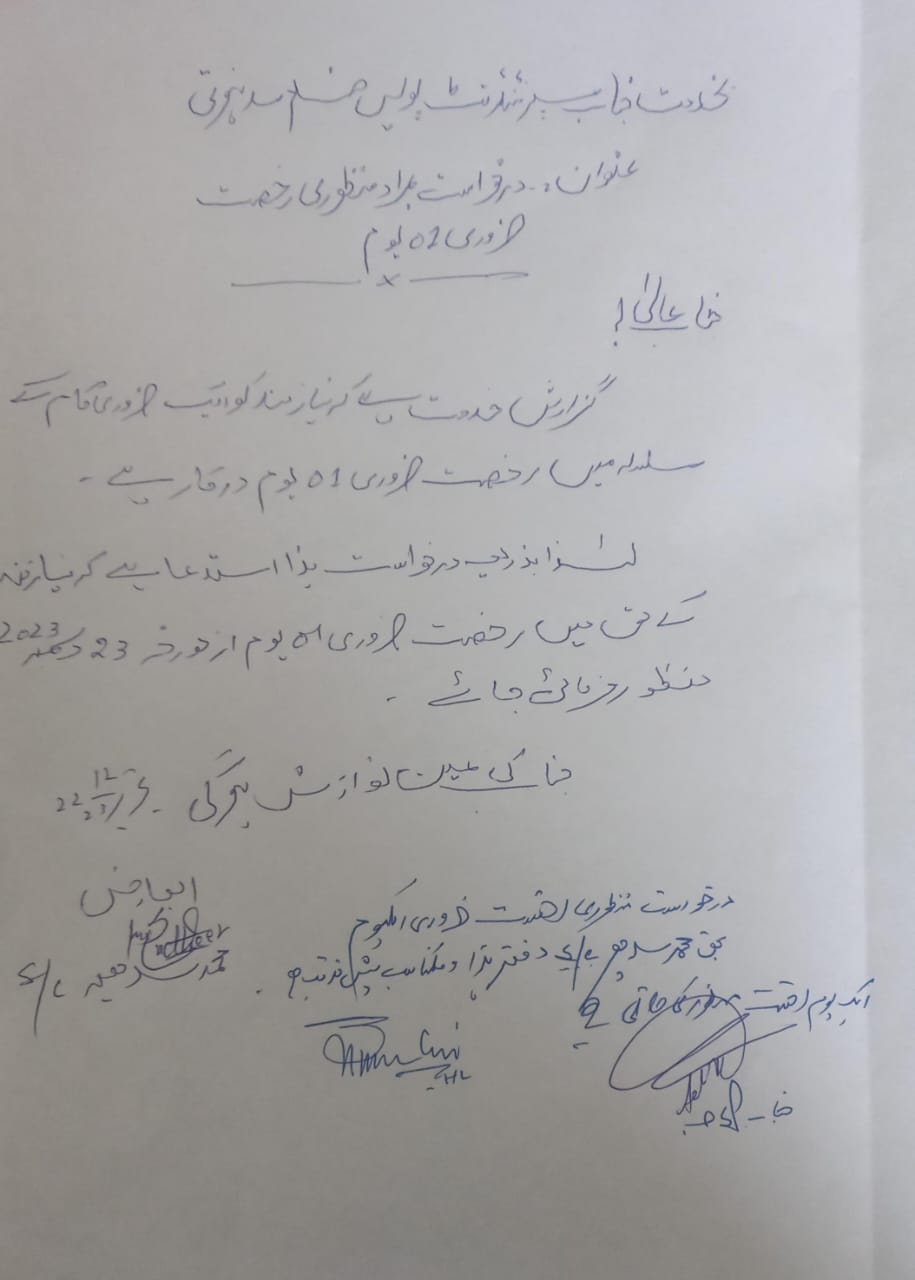 بخدمت جناب سپرنٹنڈنٹ پولیس
عنوان:۔ درخواست بمراد منظوری رخصت
ضروری 01 یوم
x
جناب عالیٰ!
گزارش خدمت ہے کہ نیازمند کو ایک ضروری کام کے
سلسلہ میں رخصت ضروری 01 یوم درکار ہے۔
لہٰذا بذریعہ درخواست ہذا استدعا ہے کہ نیازمند
کے حق میں رخصت ضروری 01 یوم از مورخہ 23 دسمبر 2023
منظور فرمائی جائے۔
جناب کی عین نوازش ہوگی۔ تحریر 22
العارض
درخواست منظوری رخصت ضروری ایکیوم
بحق محمد دفتر ہذا مناسب پیش خدمت ہے
ایک یوم رخصت منظور کی جاتی ہے
محمد
جناب